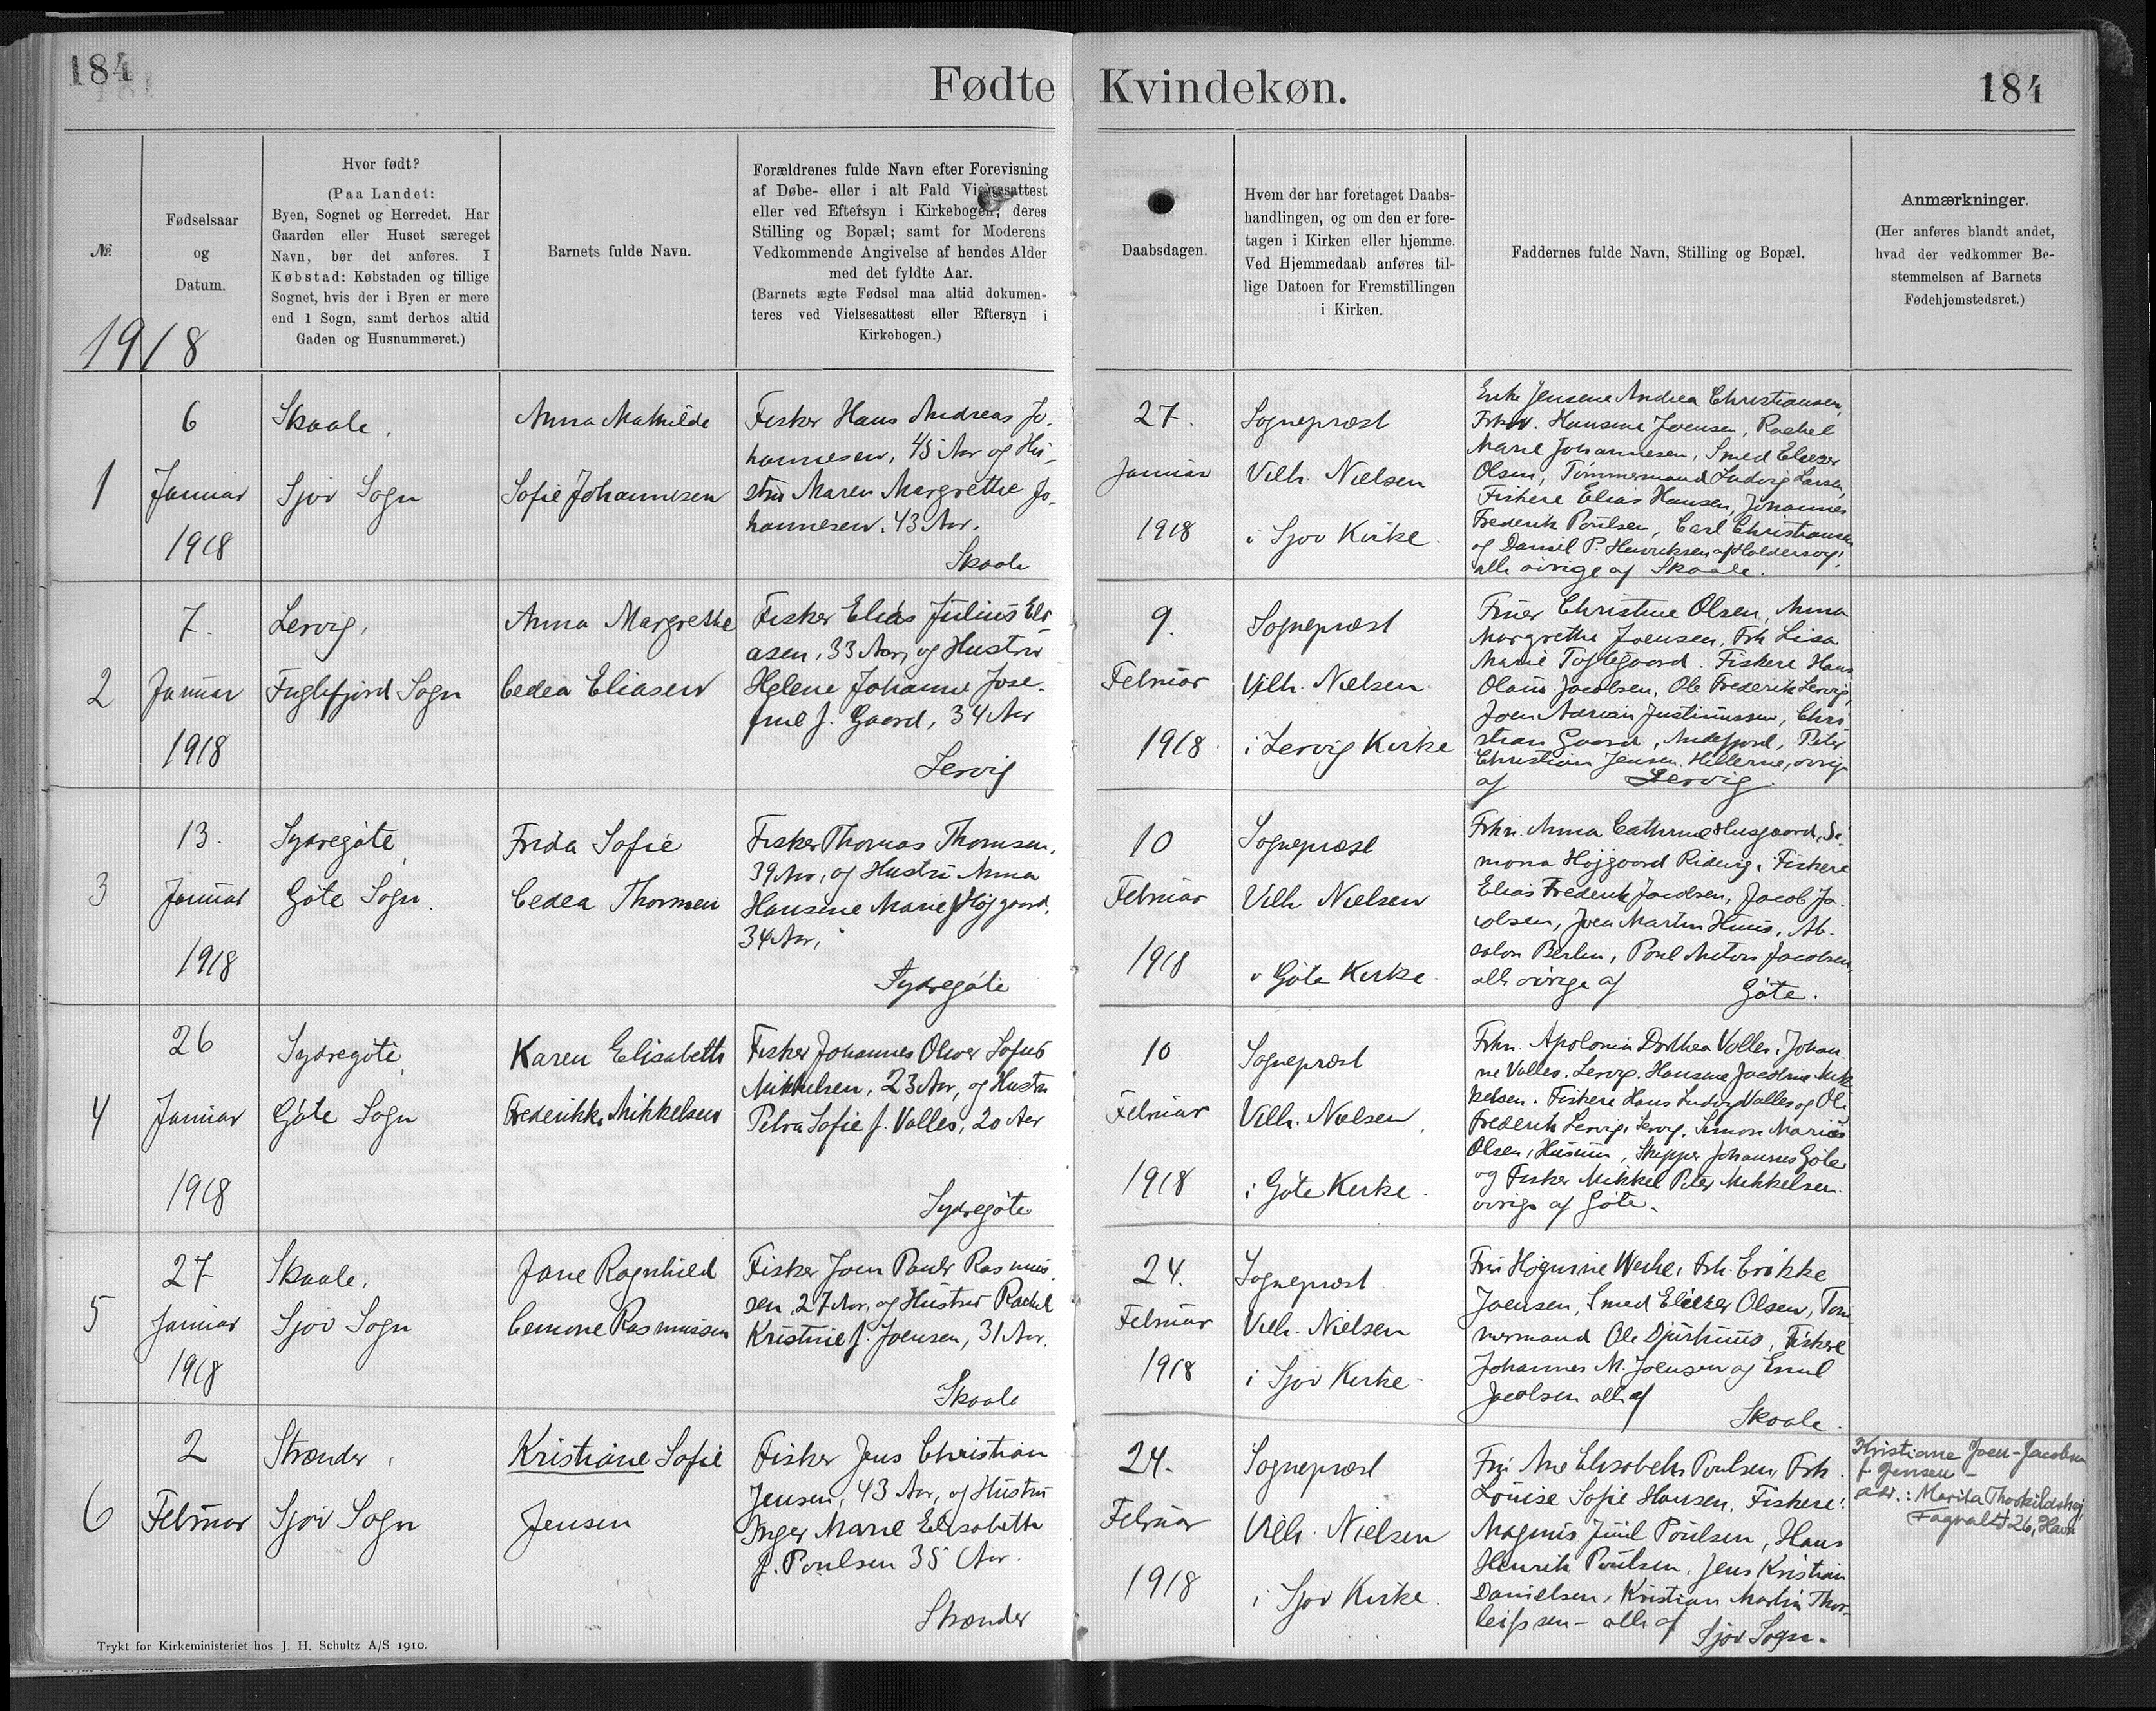 184
Fødte
Kvindekøn.
184
№
1918
Fødselsaar
og
Datum.
Hvor født?
(Paa Landet:
Byen, Sognet og Herredet. Har
Gaarden eller Huset særeget
Navn, bør det anføres. I
Købstad: Købstaden og tillige
Sognet, hvis der i Byen er mere
end 1 Sogn, samt derhos altid
Gaden og Husnummeret.)
Barnets fulde Navn.
Forældrenes fulde Navn efter Forevisning
af Døbe- eller i alt Fald Vielsesattest
eller ved Eftersyn i Kirkebogen; deres
Stilling og Bopæl; samt for Moderens
Vedkommende Angivelse af hendes Alder
med det fyldte Aar.
(Barnets ægte Fødsel maa altid dokumen-
teres ved Vielsesattest eller Eftersyn i
Kirkebogen.)
Daabsdagen.
Hvem der har foretaget Daabs-
handlingen, og om den er fore-
tagen i Kirken eller hjemme.
Ved Hjemmedaab anføres til-
lige Datoen for Fremstillingen
i Kirken.
Faddernes fulde Navn, Stilling og Bopæl.
Anmærkninger.
(Her anføres blandt andet,
hvad der vedkommer Be-
stemmelsen af Barnets
Fødehjemstedsret.)
1
6
Januar
1918
Skaale,
Sjov Sogn
Anna Mathilde
Sofie Johannesen
Fisker Hans Andreas Jo-
hannesen, 45 Aar og Hu-
stru Maren Margrethe Jo-
hannesen. 43 Aar.
Skaale
27.
Januar
1918
Sognepræst
Vilh. Nielsen
i Sjov Kirke.
Enke Jensene Andrea Christiansen,
Frkn. Hansine Joensen, Rachel
Marie Johannesen, Smed Eliezer
Olsen, Tømmermand Ludvig Larsen,
Fiskere Elias Hansen, Johannes
Frederik Poulsen, Carl Christiansen
og Daniel P. Henriksen af
alle øvrige af Skaale.
2
7.
Januar
1918
Lervig,
Fuglefjord Sogn
Anna Margrethe
Cedea Eliasen
Fisker Elias Julius Eli-
asen, 33 Aar, og Hustru
Helene Johanne Jose-
fine f. Gaard, 34 Aar
Lervig
9.
Februar
1918
Sognepræst
Vilh. Nielsen
i Lervig Kirke
Fruer Christine Olsen, Anna
Margrethe Joensen, Frk Lisa
Marie Toftegaard. Fiskere Hans
Olaus Jacobsen, Ole Frederik Lervig,
Joen Adrian Justinussen, Chri
stian Gaard, Andefjord, Peter
Christian Jensen, Hellerne, øvrige
af Lervig.
3
13.
Januar
1918
Sydregöte,
Göte Sogn.
Frida Sofie
Cedea Thomsen
Fisker Thomas Thomsen,
39 Aar, og Hustru Anna
Hansine Marie f. Højgaard,
34 Aar,
Sydregöte
10
Februar
1918
Sognepræst
Vilh Nielsen
i Göte Kirke.
Frkn. Anna Cathrine Husgaard, Si-
mona Højgaard Ridvig. Fiskere
Elias Frederik Jacobsen, Jacob Ja-
cobsen, Joen Martin Huus, Ab-
salon Berlin, Poul Jacobsen,
alle øvrige af Göte.
4
26
Januar
1918
Sydregöte,
Göte Sogn
Karen Elisabeth
Frederikke Mikkelsen
Fisker Johannes Oliver Sofus
Mikkelsen, 23 Aar, og Hustru
Petra Sofie f. Valles, 20 Aar
Sydregöte
10
Februar
1918
Sognepræst
Vilh. Nielsen,
i Göte Kirke.
Frkn. Apolonia Dorthea Valles, Johan-
ne Valles. Lervig. Hansine Jacobine Mik-
kelsen. Fiskere Hans Ludvig Valles og Ole
Frederik Lervig, Lervig. Simon Marius
Olsen, Husum, Skipper Johannes Göte
og Fisker Mikkel Peter Mikkelsen
øvrige af Göte.
5
27
Januar
1918
Skaale,
Sjov Sogn
Jane Ragnhild
Cemone Rasmussen
Fisker Joen Rasmus-
sen, 27 Aar, og Hustru Rachel
Kristine f. Joensen, 31 Aar.
Skaale
24.
Februar
1918
Sognepræst
Vilh. Nielsen
i Sjov Kirke
Fru Höguine Weihe, Frk. Erikke
Joensen, Smed Eliezer Olsen, Töm
mermand Ole Djurhuus, Fiskere
Johannes M. Joensen og Emil
Jacobsen alle af
Skaale.
6
2
Februar
Strænder,
Sjov Sogn
Kristiane Sofie
Jensen
Fisker Jens Christian
Jensen, 43 Aar, og Hustru
Inger Marie Elisabeth
f. Poulsen 35 Aar.
Strænder
24.
Februar
1918
Sognepræst
Vilh. Nielsen
i Sjov Kirke.
Fru Ane Elisabeth Poulsen, Frk.
Louise Sofie Hansen, Fiskere:
Magnus Juul Poulsen, Hans
Henrik Poulsen, Jens Kristian
Danielsen, Kristian Martin Thor-
leifssen – alle af Sjov Sogn.
Kristiane Joen-Jacobsen
f. Jensen –
adr.: Marita Thorkildshøj
26, Havn
Trykt for Kirkeministeriet hos J. H. Schultz A/S 1910.